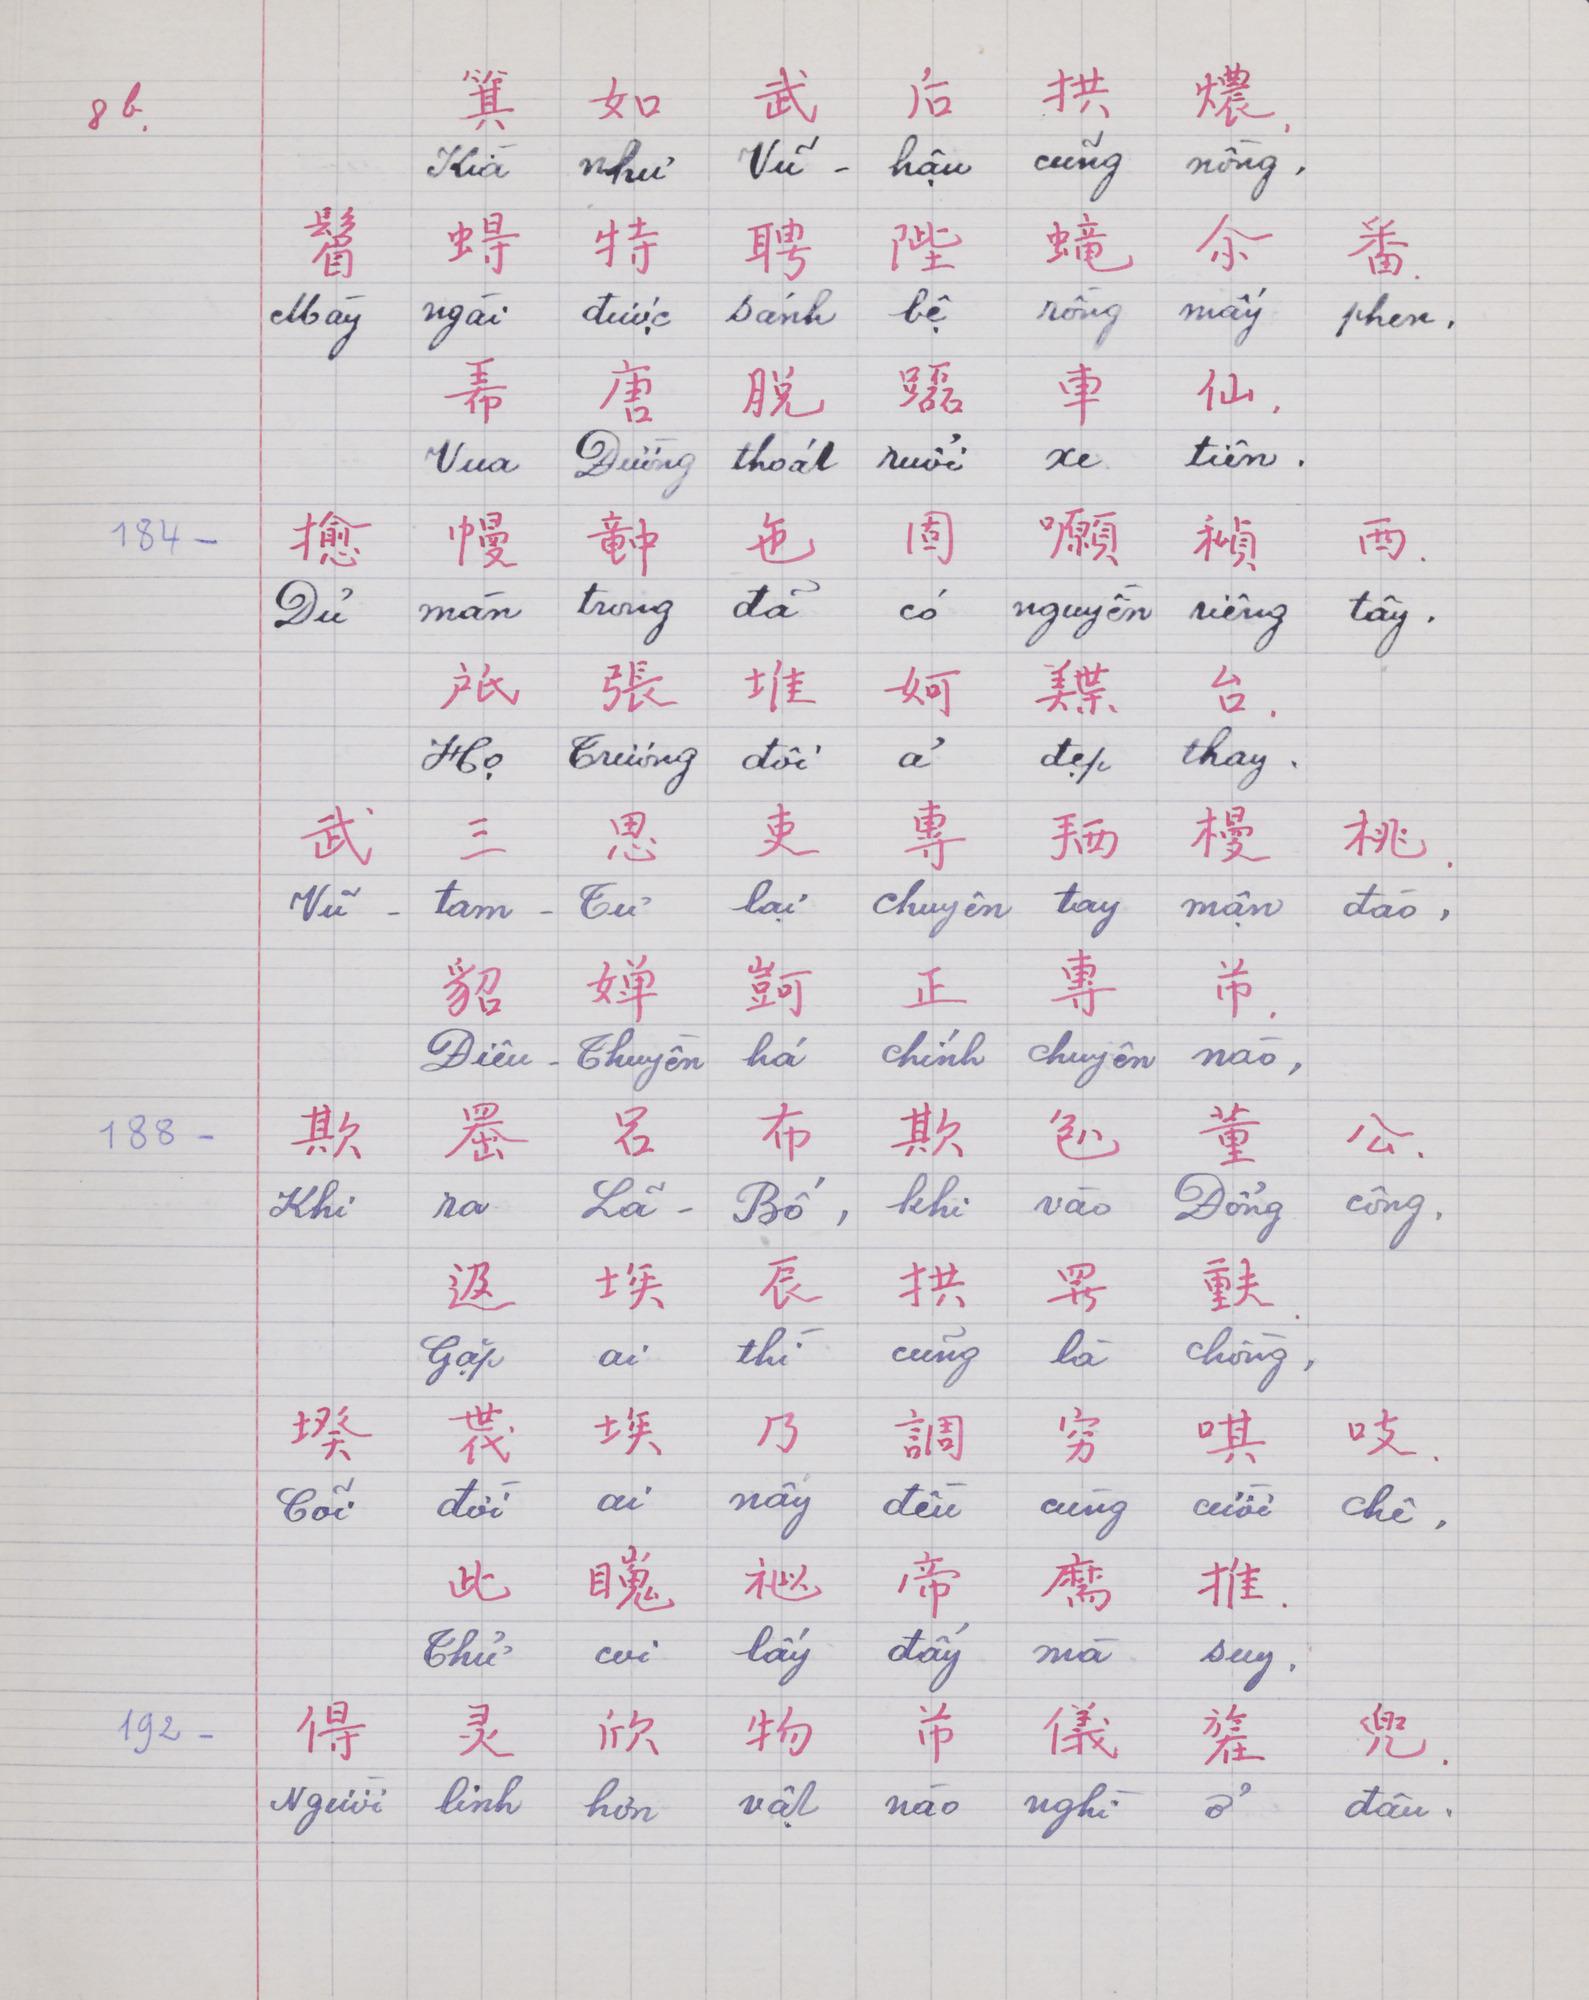 8b. 箕 如 武 后 拱 燶.
Kià như Vũ - hậu cũng nồng,
鬒 蟳 特 聘 陛 蠬 尒 番.
Mày ngài được sánh bệ rồng mấy phen.
唐 脱 車 仙.
Vua Đường thoát ruổi xe tiên.
184 - 幔 𥪝 㐌 固 願 西.
Dủ màn trong đã có nguyền riêng tây.
張 堆 妸 台.
Họ Trương đôi ả đẹp thay.
武 三 思 吏 專 𢬣 槾 桃.
Vũ - tam - Tư lại chuyên tay mận đào,
貂 婵 正 專 芇.
Điêu - Thuyền há chính chuyên nào,
188 - 欺 𦋦 呂 布 欺 𠓨 董 公.
Khi ra Lã - Bố, khi vào Đổng công,
埃 辰 拱 罗 𫯳.
Gặp ai thì cũng là chồng,
埃 乃 調 穷 唭 吱.
Cõi đời ai nấy đều cùng cười chê,
此 𥋳 帝 麿 推.
Thử coi lấy đấy mà suy,
192 - 得 灵 欣 物 芇 儀 兜.
Người linh hơn vật nào nghì ở đâu.